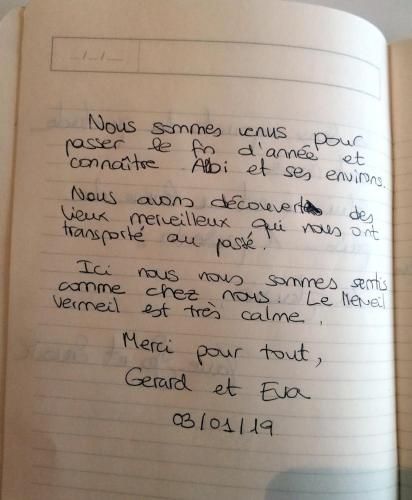 _/_/_
Nous sommes venus pour
passer le fin d'année et
connaître Albi et ses environs.
Nous avons découvert des
lieux merveilleux qui nous ont
transporté au passé.
Ici nous nous sommes sentis
comme chez nous. Le Merveil
vermeil est très calme.
Merci pour tout,
Gerard et Eva
03/01/19